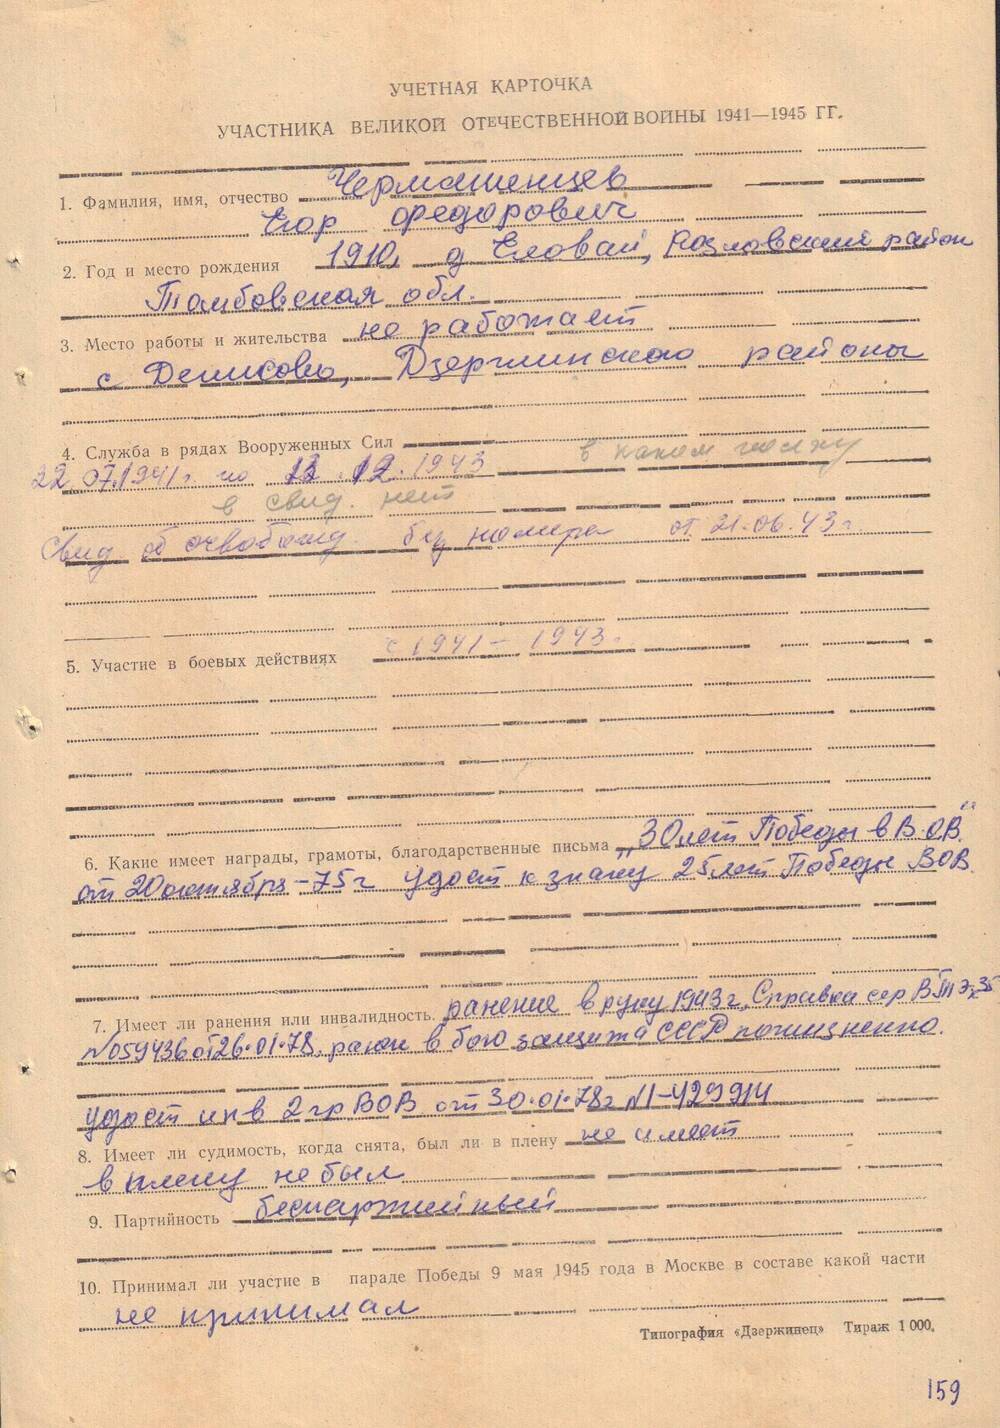 УЧЕТНАЯ КАРТОЧКА
УЧАСТНИКА ВЕЛИКОЙ ОТЕЧЕСТВЕННОЙ ВОЙНЫ 1941—1945 ГГ.
1. Фамилия, имя, отчество Чермашенцев
Егор Федорович
2. Год и место рождения 1910, д Еловай, Козловский район
Тамбовская обл.
3. Место работы и жительства не работает
с Денисово, Дзержинского района
4. Служба в рядах Вооруженных Сил в каком полку
22.07.1941 г. по 12.12.1943
в свид. нет
Свид. об освобожд. без номера от 21.06.43 г.
5. Участие в боевых действиях с 1941 – 1943 г.
6. Какие имеет награды, грамоты, благодарственные письма „30 лет Победы в В.ОВ."
от 20 октября – 75 г удост к знаку 25 лет Победы ВОВ.
7. Имеет ли ранения или инвалидность. ранение в руку 1943 г, Справка сер ВТЭ-35
№ 059436 от 26.01.78. ранен в бою защита СССР пожизненно.
удост инв 2 гр ВОВ от 30.01.78 г № 1-429914
8. Имеет ли судимость, когда снята, был ли в плену не имеет
в плену не был
9. Партийность беспартийный
10. Принимал ли участие в параде Победы 9 мая 1945 года в Москве в составе какой части
не принимал
Типография «Дзержинец» Тираж 1 000.
159